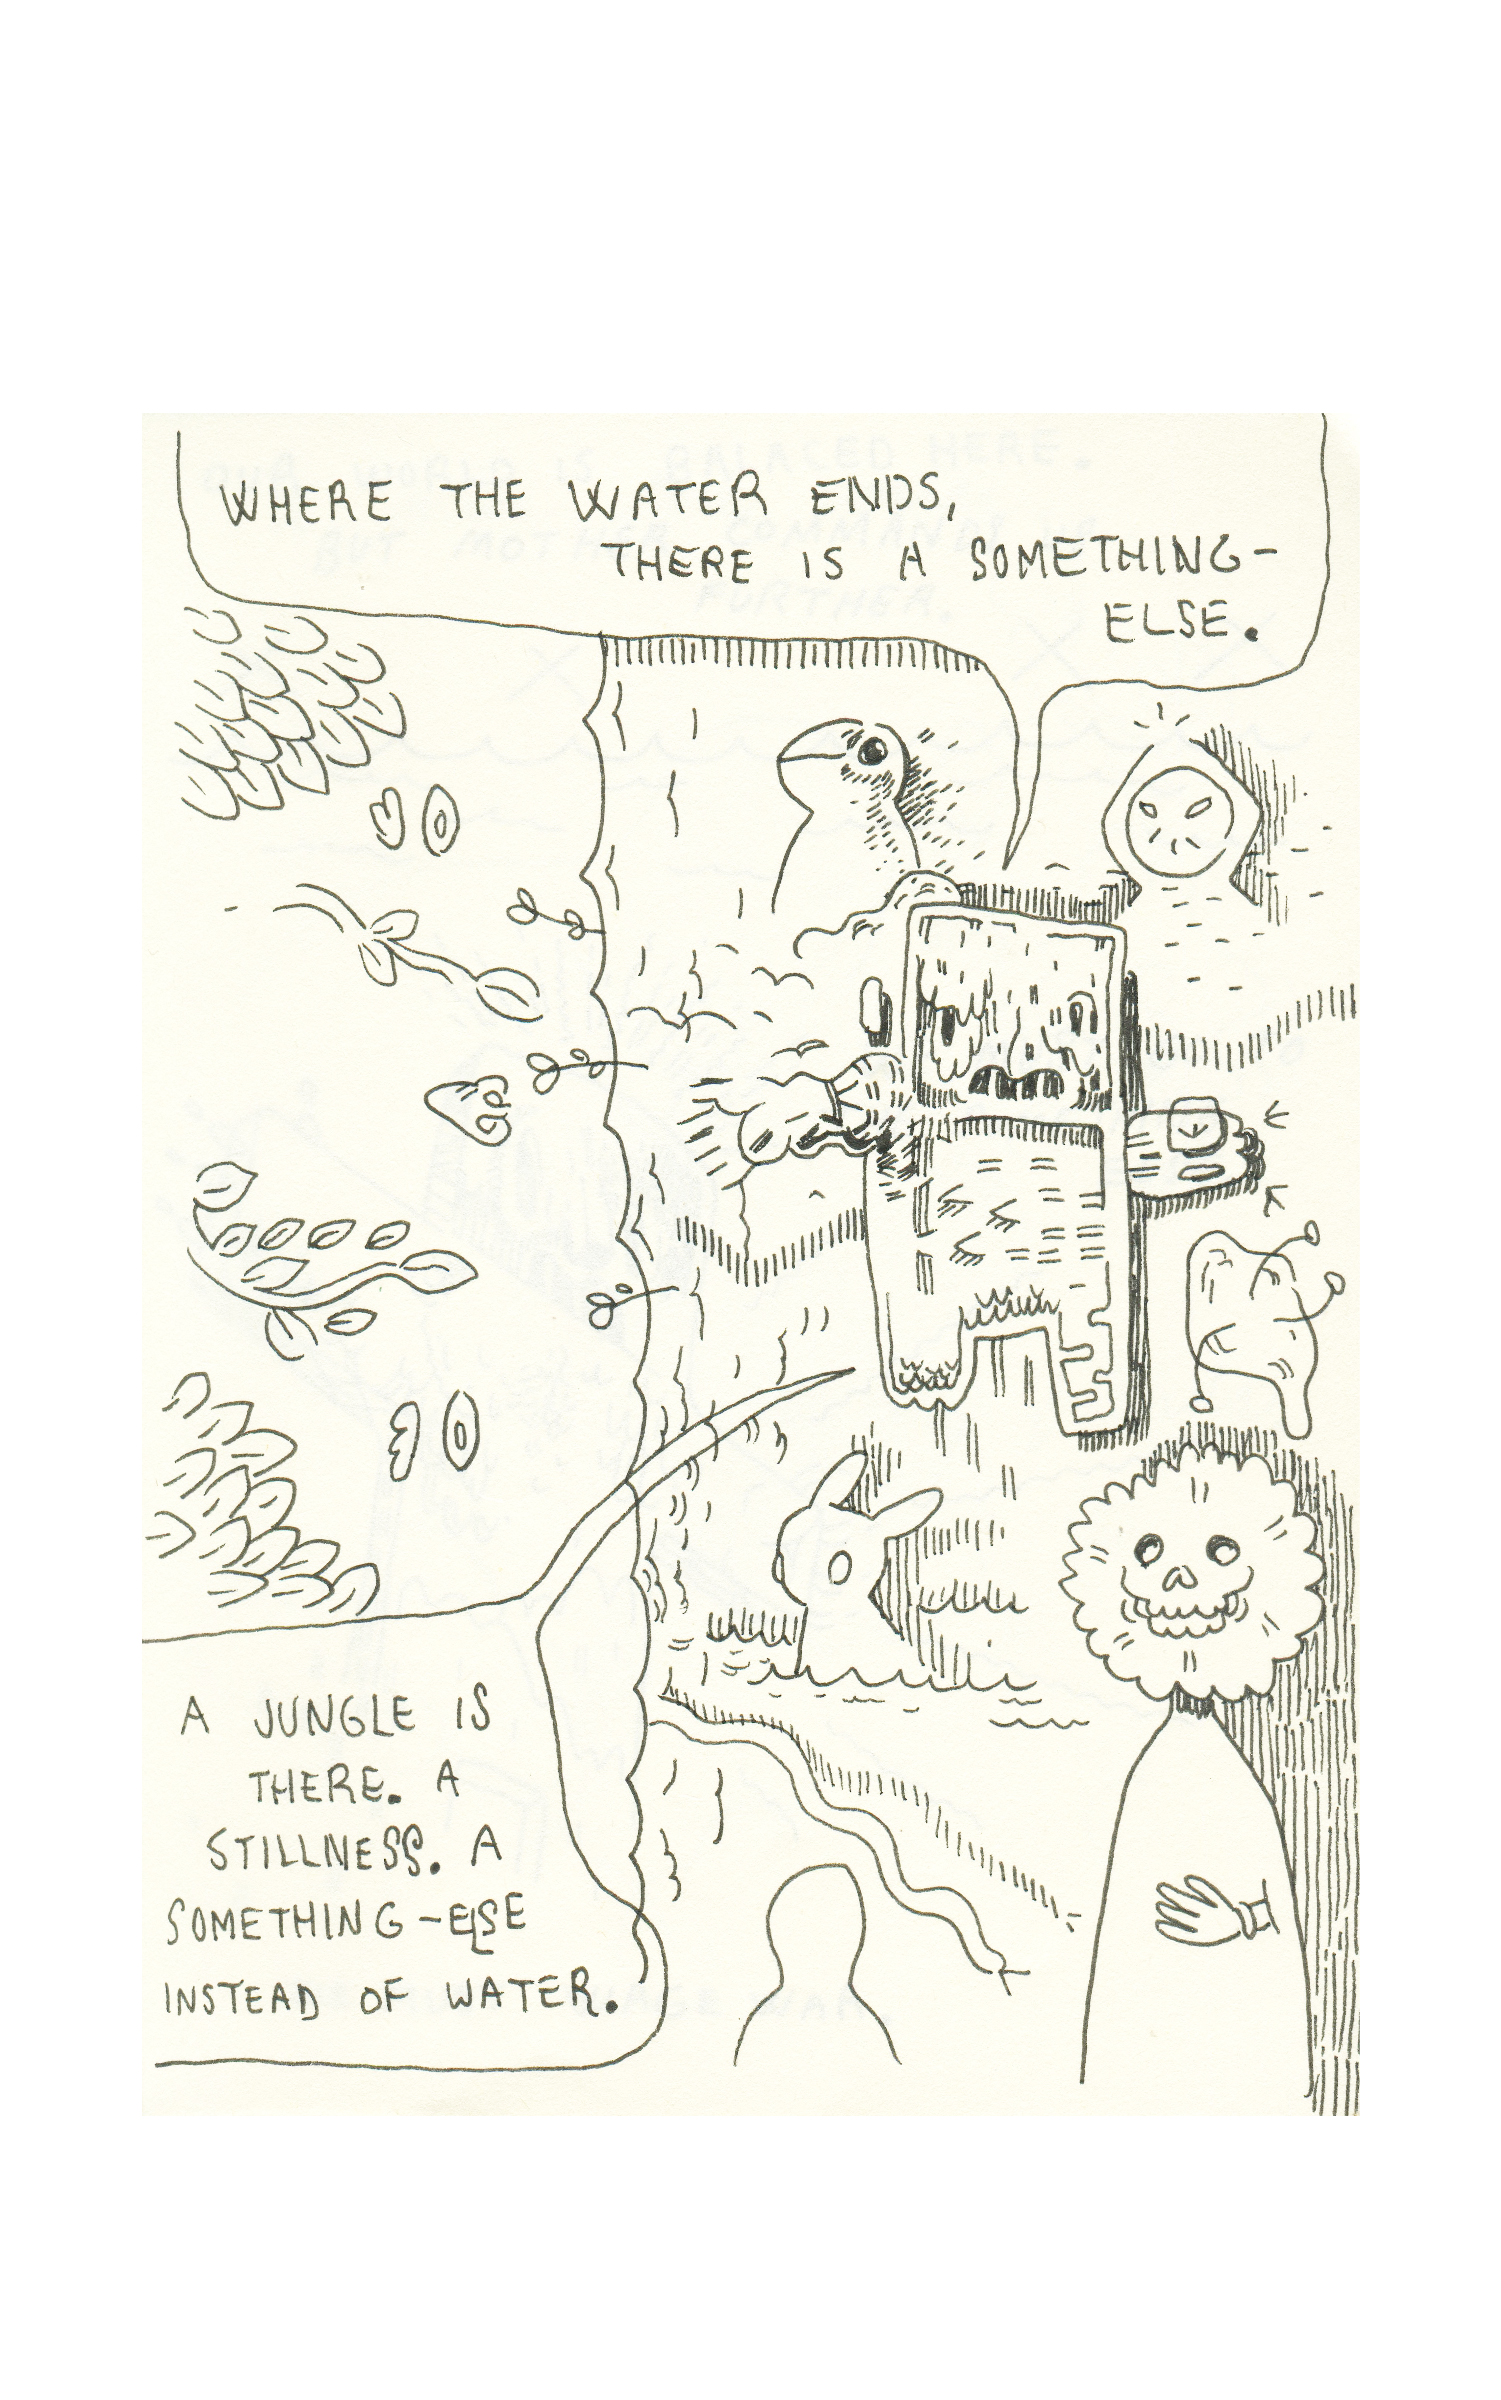 WHERE THE WATER ENDS,
THERE IS A SOMETHING-
ELSE.
A JUNGLE IS
THERE. A
STILLNESS. A
SOMETHING-ELSE
INSTEAD OF WATER.